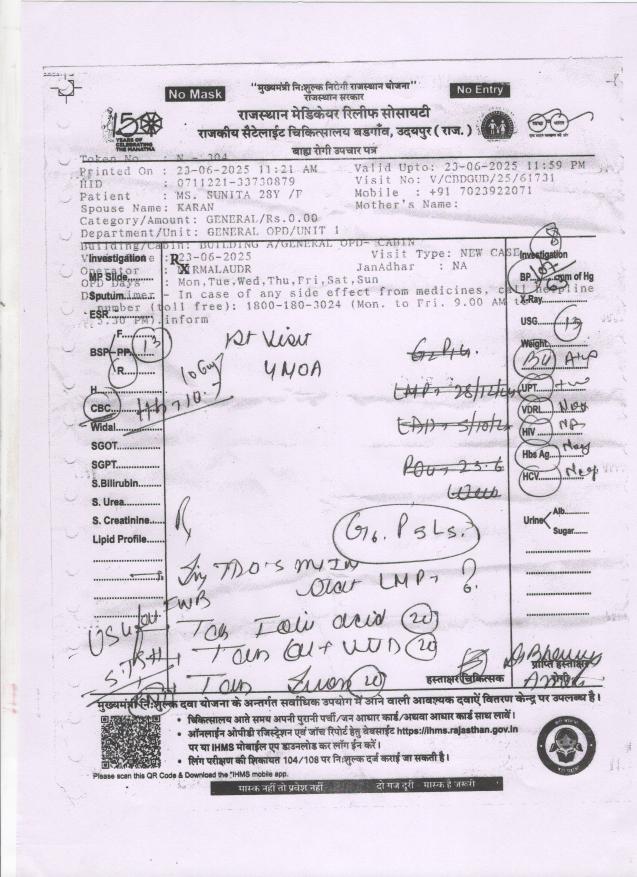 "मुख्यमंत्री निःशुल्क निरोगी राजस्थान योजना"
No Mask
No Entry
राजस्थान सरकार
राजस्थान मेडिकेयर रिलीफ सोसायटी
राजकीय सैटेलाईट चिकित्सालय बडगाँव, उदयपुर ( राज. )
150
YEARS OF
CELEBRATING
THE MAHATMA
बाह्य रोगी उपचार पत्र
Token No : N - 304
Printed On : 23-06-2025 11:21 AM Valid Upto: 23-06-2025 11:59 PM
HID : 0711221-33730879 Visit No: V/CBDGUD/25/61731
Patient : MS. SUNITA 28Y /F Mobile : +91 7023922071
Spouse Name: KARAN Mother's Name:
Category/Amount: GENERAL/Rs.0.00
Department/Unit: GENERAL OPD/UNIT 1
Building/Cabin: BUILDING A/GENERAL OPD- CABIN
:23-06-2025 Visit Type: NEW CASE
Operator : NIRMALAUDR JanAdhar : NA
OPD Days : Mon,Tue,Wed,Thu,Fri,Sat,Sun
- In case of any side effect from medicines, call
number (toll free): 1800-180-3024 (Mon. to Fri. 9.00 AM to
5.30 PM).inform
Investigation
Rx
MP Slide
Sputum
ESR
F.
BSP PP. 13
R.
H
CBC Hb 10
Widal
SGOT
SGPT
S.Bilirubin
S. Urea
S. Creatinine
Lipid Profile
1st Visit
4 MOA
LMP 28/12/24
Rx
G6 P5 L5
LMP ?
Tab Folic acid 20
Tab Cal + Vit D 20
Tab 20
Investigation
BP 107 mm of Hg
X-Ray
USG 13
Weight
UPT +ve
VDRL Neg
HIV
Hbs Ag Neg
HCV Neg
Urine Alb.
Sugar
हस्ताक्षर चिकित्सक
प्राप्ति हस्ताक्षर
मुख्यमंत्री निःशुल्क दवा योजना के अन्तर्गत सर्वाधिक उपयोग में आने वाली आवश्यक दवाऐं वितरण केन्द्र पर उपलब्ध है।
• चिकित्सालय आते समय अपनी पुरानी पर्ची/जन आधार कार्ड/अथवा आधार कार्ड साथ लावें।
• ऑनलाईन ओपीडी रजिस्ट्रेशन एवं जाँच रिपोर्ट हेतु वेबसाईट https://ihms.rajasthan.gov.in
पर या IHMS मोबाईल एप डाउनलोड कर लॉग ईन करें।
• लिंग परीक्षण की शिकायत 104/108 पर निःशुल्क दर्ज कराई जा सकती है।
Please scan this QR Code & Download the "IHMS mobile app.
मास्क नहीं तो प्रवेश नहीं दो गज दूरी - मास्क है जरूरी